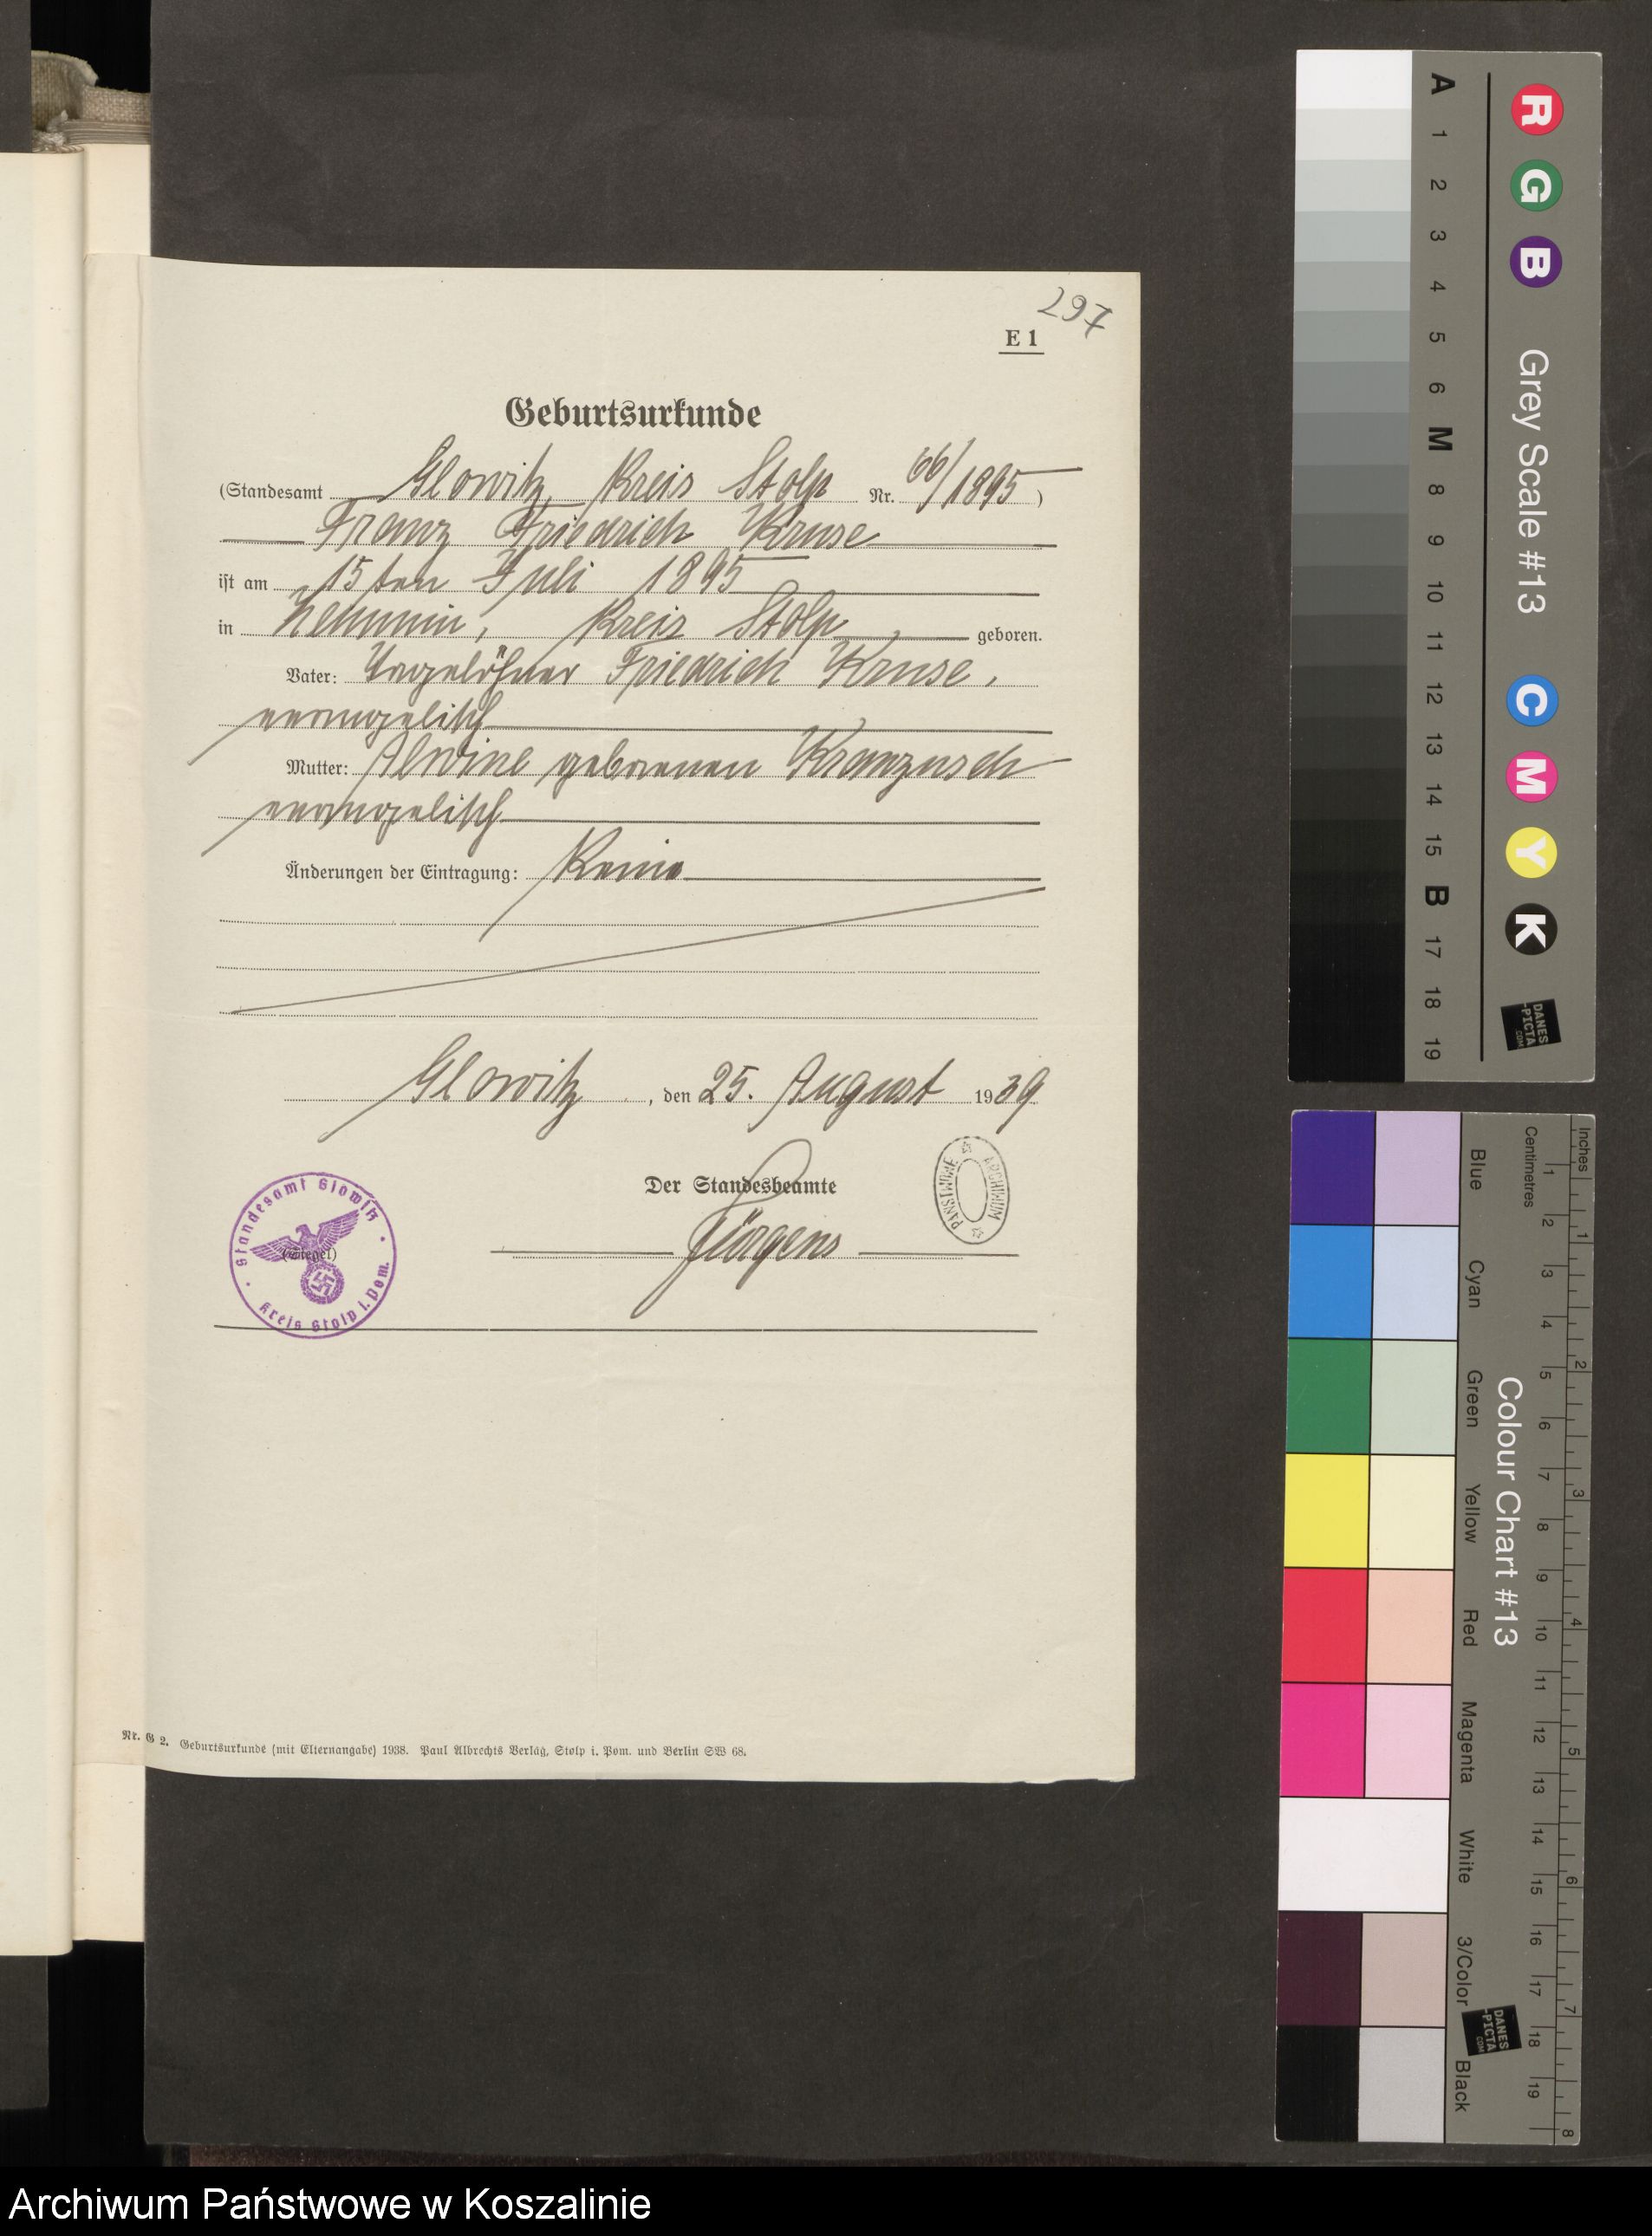 297
E 1
Geburtsurkunde
(Standesamt Glowitz, Kreis Stolp Nr. 66/1895)
Franz Friedrich Kruse
ist am 15ten Juli 1895
in Zemmin, Kreis Stolp geboren.
Vater: Tagelöhner Friedrich Kruse,
evangelisch
Mutter: Alwine geborenen Kranzusch
evangelisch
Änderungen der Eintragung: Keine
Glowitz, den 25. August 1939
Der Standesbeamte
Jürgens
(Siegel)
Standesamt Glowitz
Kreis Stolp i. Pom.
ARCHIWUM PAŃSTWOWE
Nr. G 2. Geburtsurkunde (mit Elternangabe) 1938. Paul Albrechts Verlag, Stolp i. Pom. und Berlin SW 68.
A 1 2 3 4 5 6 M 8 9 10 11 12 13 14 15 B 17 18 19
R G B
Grey Scale #13
C M Y K
DANES
-PICTA
.COM
Blue Cyan Green Yellow Red Magenta White 3/Color Black
Colour Chart #13
Centimetres
1 2 3 4 5 6 7 8 9 10 11 12 13 14 15 16 17 18 19
Inches
1 2 3 4 5 6 7 8
DANES
-PICTA
.COM
Archiwum Państwowe w Koszalinie